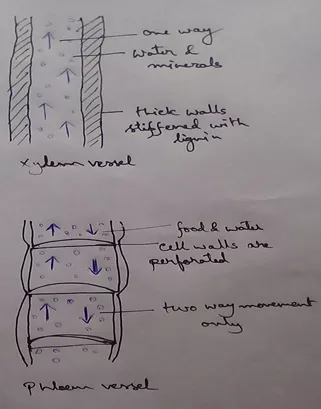 one way
water &
minerals
thick walls
stiffened with
lignin
Xylem vessel
food & water
cell walls are
perforated
two way movement
only
Phloem vessel